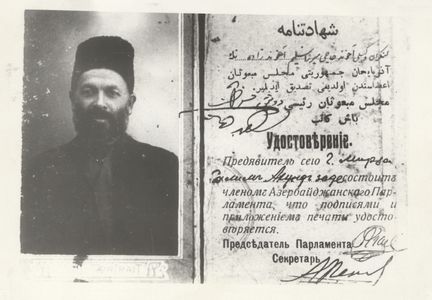 شهادتنامه
آذربایجان جمهوریتی مجلس مبعوثان
اعضاسندن اولدیغی تصدیق ایدیلیر.
مجلس مبعوثان رئیسی
باش کاتب
Удостовѣреніе.
Предявитель сего г. Мирза
Салимъ Ахундзаде состоитъ
членомъ Азербайджанскаго Пар-
ламента, что подписями и
приложеніемъ печати удосто-
вѣряется.
Предсѣдатель Парламента
Секретарь